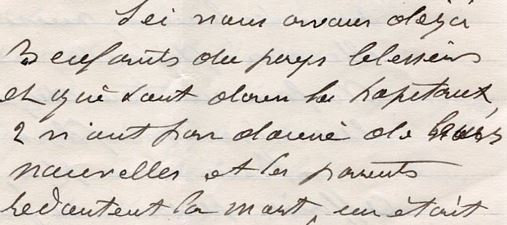 Ici nous avons déjà
3 enfants du pays blessés
et qui sont dans les hopitaux,
2 n'ont pas donné de leurs
nouvelles et les parents
redoutent la mort, un était